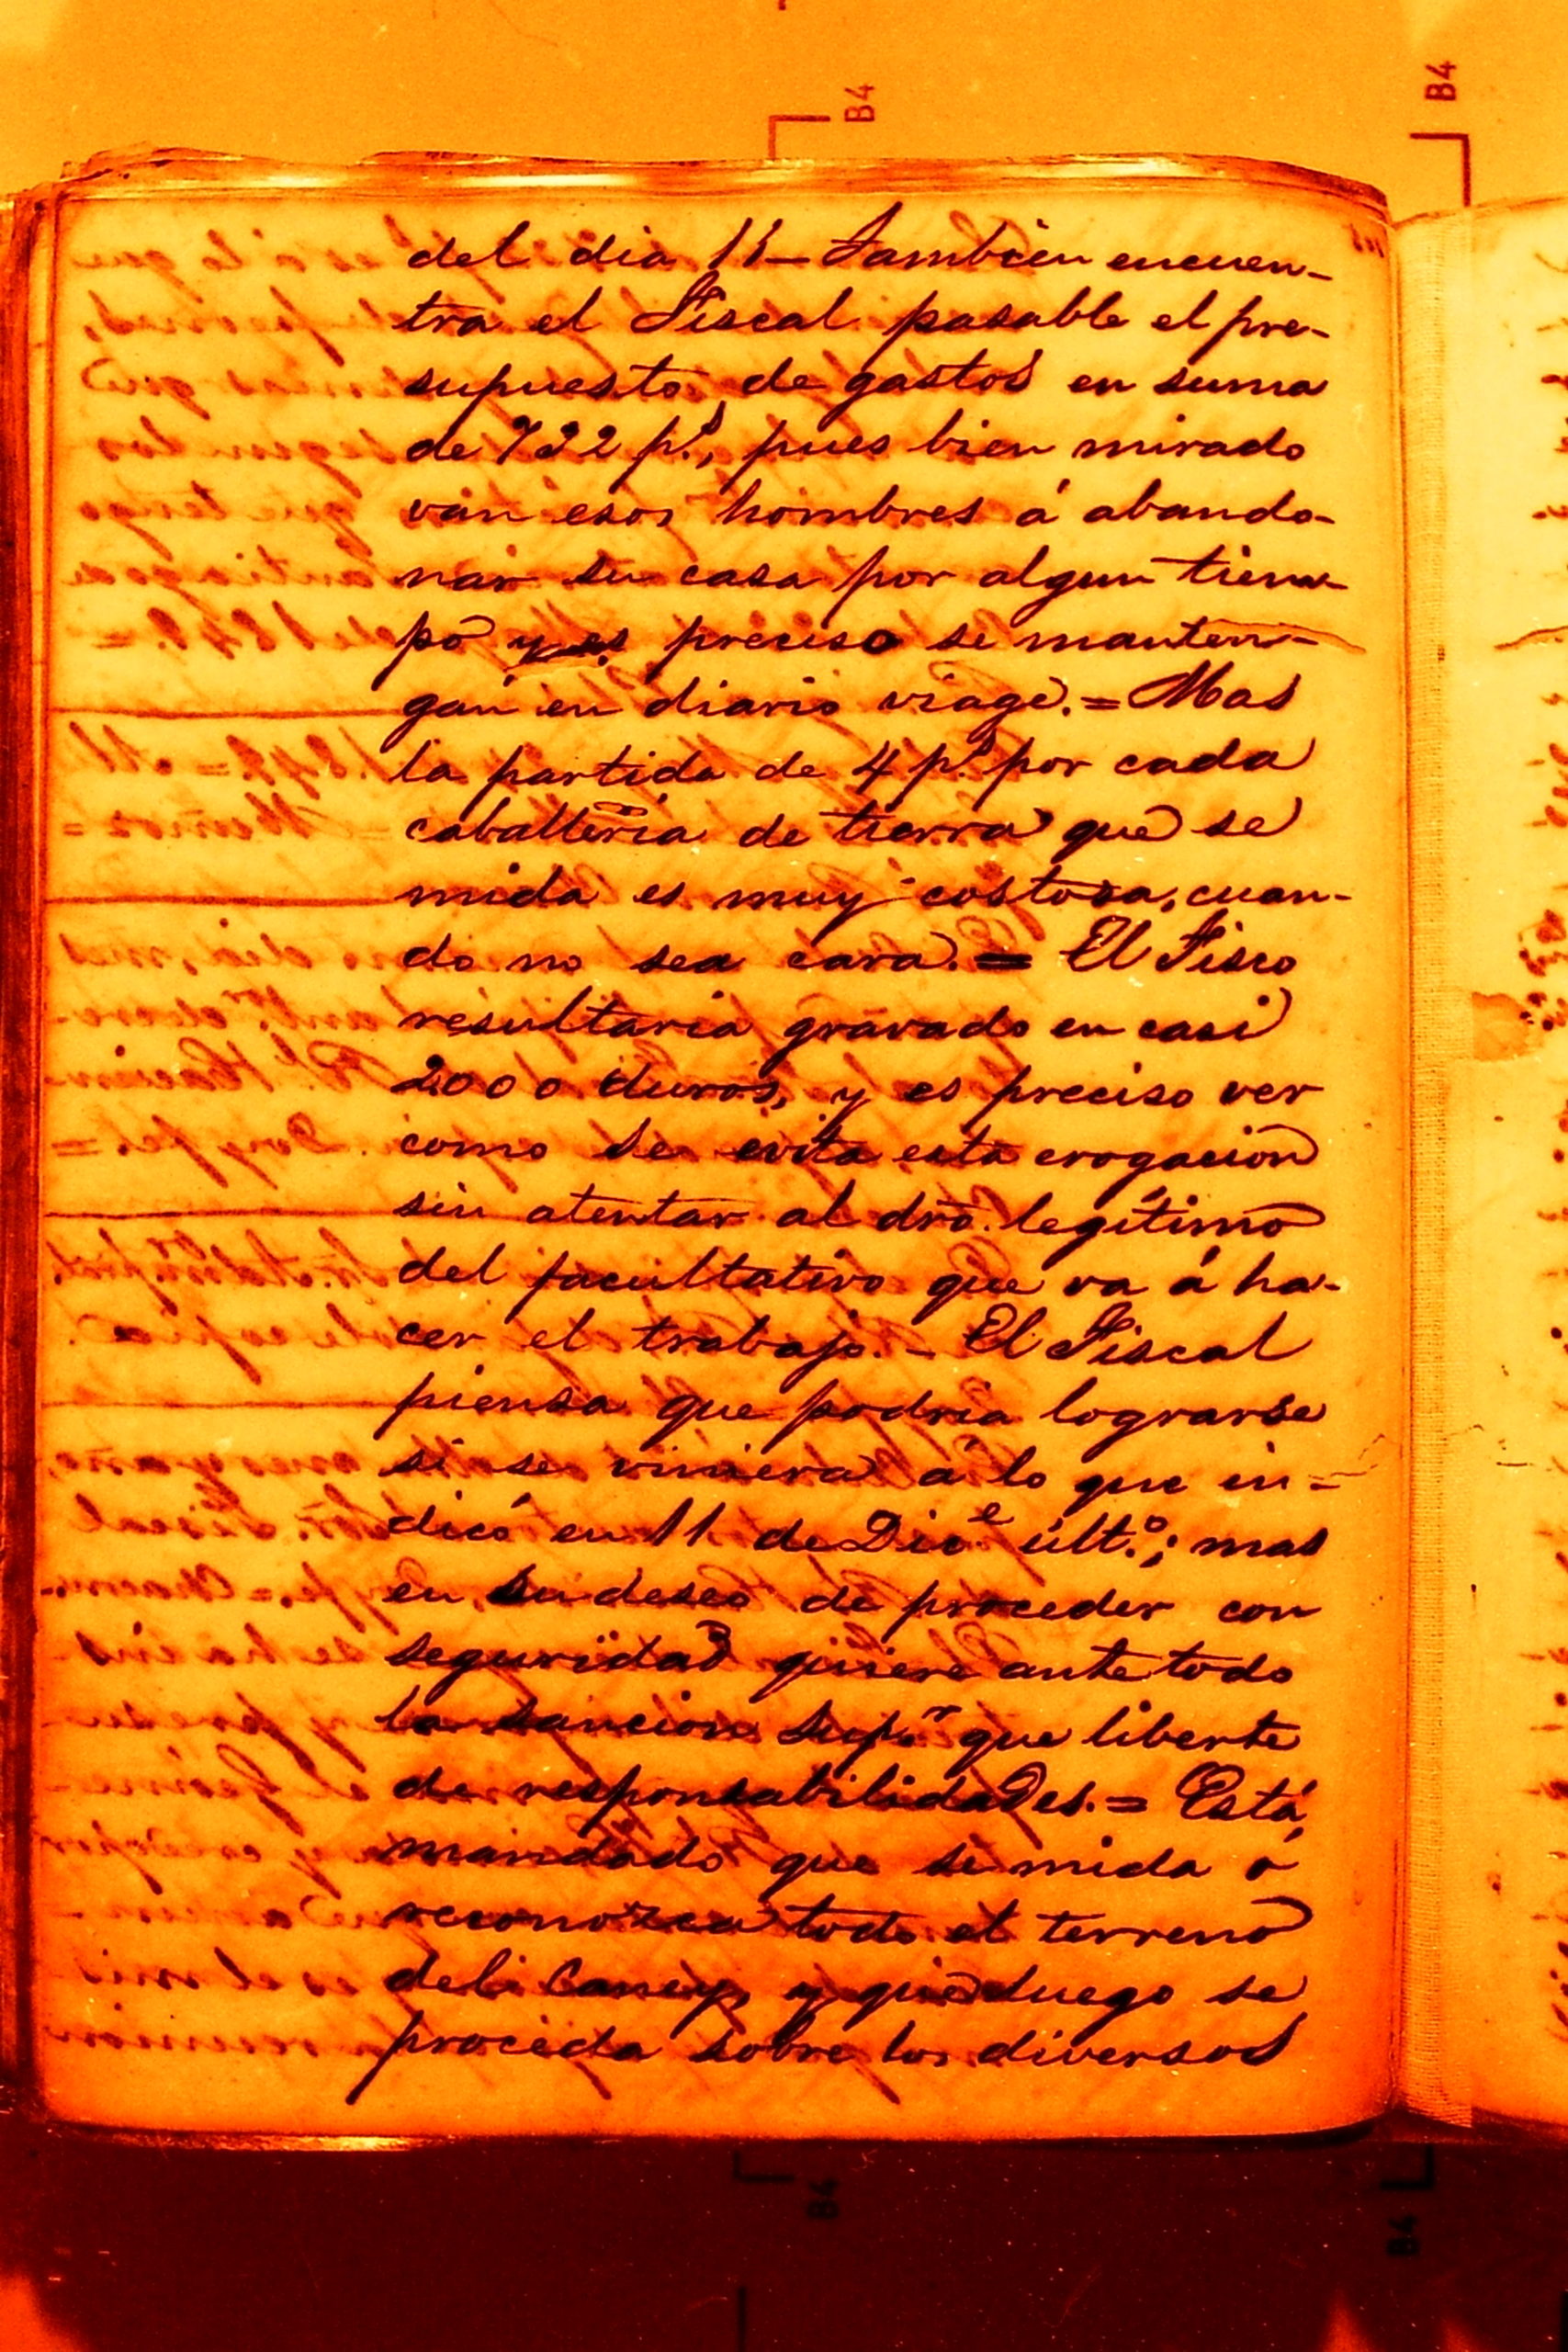 B4
B4
del dia 11 - Tambien encuen-
tra el Fiscal pasable el pre-
supuesto de gastos en suma
de 722 p.s, pues bien mirado
van esos hombres á abando-
nar su casa por algun tiem-
po y es preciso se manten-
gan en diario viage. = Mas
la partida de 4 p.s por cada
caballeria de tierra que se
mida es muy costosa, cuan-
do no sea cara. = El Fisco
resultaria gravado en casi
2000 duros, y es preciso ver
como se evita esta erogacion
sin atentar al dro. legítimo
del facultativo que va á ha-
cer el trabajo. - El Fiscal
piensa que podria lograrse
si se viniera á lo que in-
dicó en 11 de Dice. últ.o; mas
en su deseo de proceder con
seguridad quiere ante todo
la sancion Sup.r que liberte
de responsabilidades. = Está
mandado que se mida ó
reconozca todo el terreno
del Caney, y que luego se
proceda sobre los diversos
B4
B4